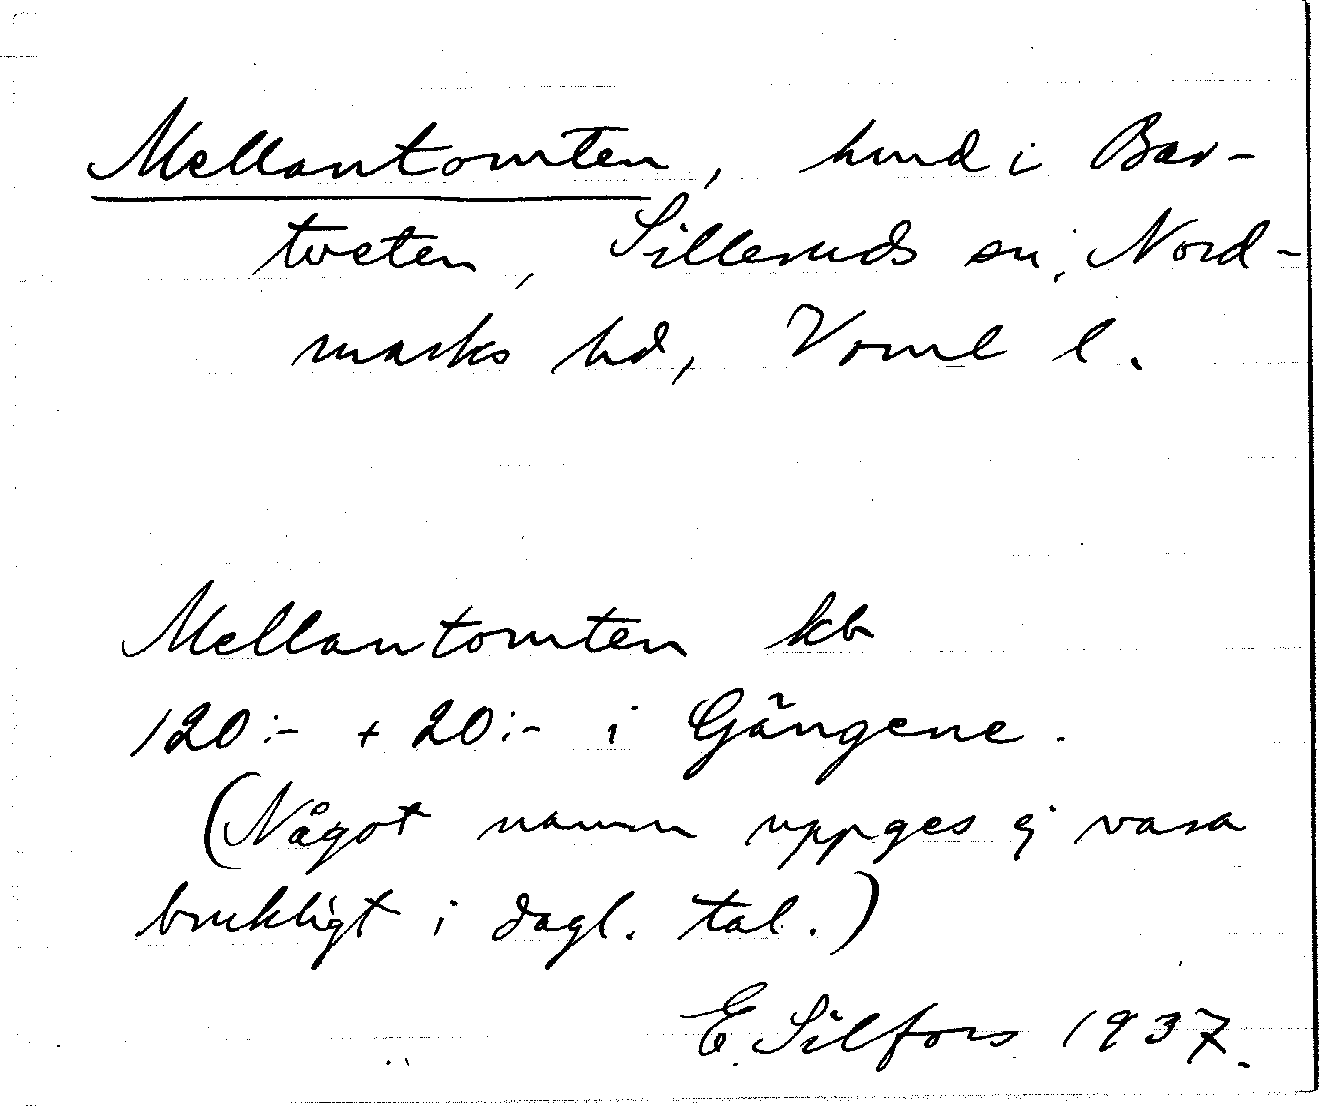 Mellantomten, hmd i Bår-
tveten, Silleruds sn, Nord-
marks hd, Vrml l.
Mellantomten kb
120:- + 20:- i Gängene.
(Något namn uppges ej vara
brukligt i dagl. tal.)
E. Silfors 1937.